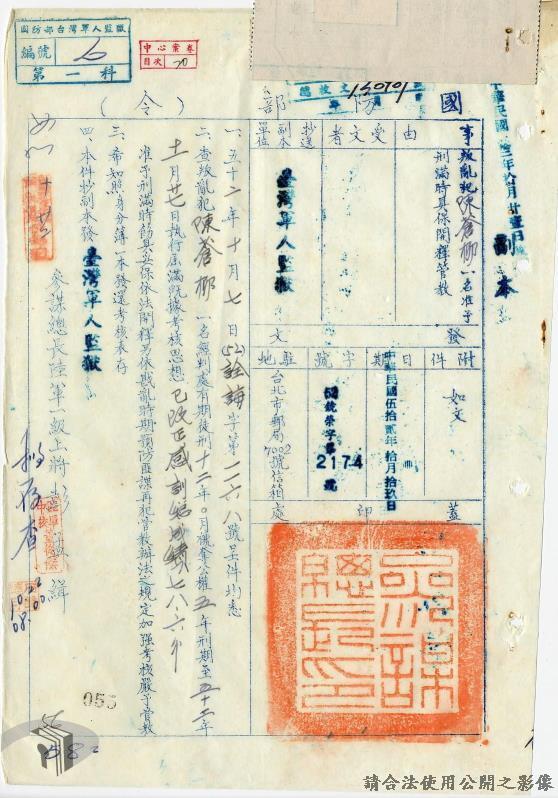 國防部台灣軍人監獄
編號
第一科
中心案卷
目次
國防部
（令）
中華民國
副本
事由
叛亂犯陳蒼柳一名准予刑滿時具保開釋管教
受文者
抄送副本單位
臺灣軍人監獄
附件
如文
發文
日期
中華民國伍拾貳年拾月拾玖日
字號
字第2174號
駐地
台北市郵局7002號信箱
蓋印處
參謀總長印
一、五十二年十月七日(52)詮誨字第一一六八號呈件均悉
二、查叛亂犯陳蒼柳一名無判處有期徒刑十二年○月褫奪公權五年刑期至五十二年
十一月廿七日執行屆滿既據考核思想已改正感訓總成績七八‧六分
准予刑滿時飭具妥保依法開釋另依戡亂時期預防匪諜再犯管教辦法之規定加強考核嚴予管教
三、希知照身分簿一本發還考核表存
四、本件抄副本發臺灣軍人監獄
參謀總長陸軍一級上將彭孟緝
存查
10.22
08.00
055
請合法使用公開之影像